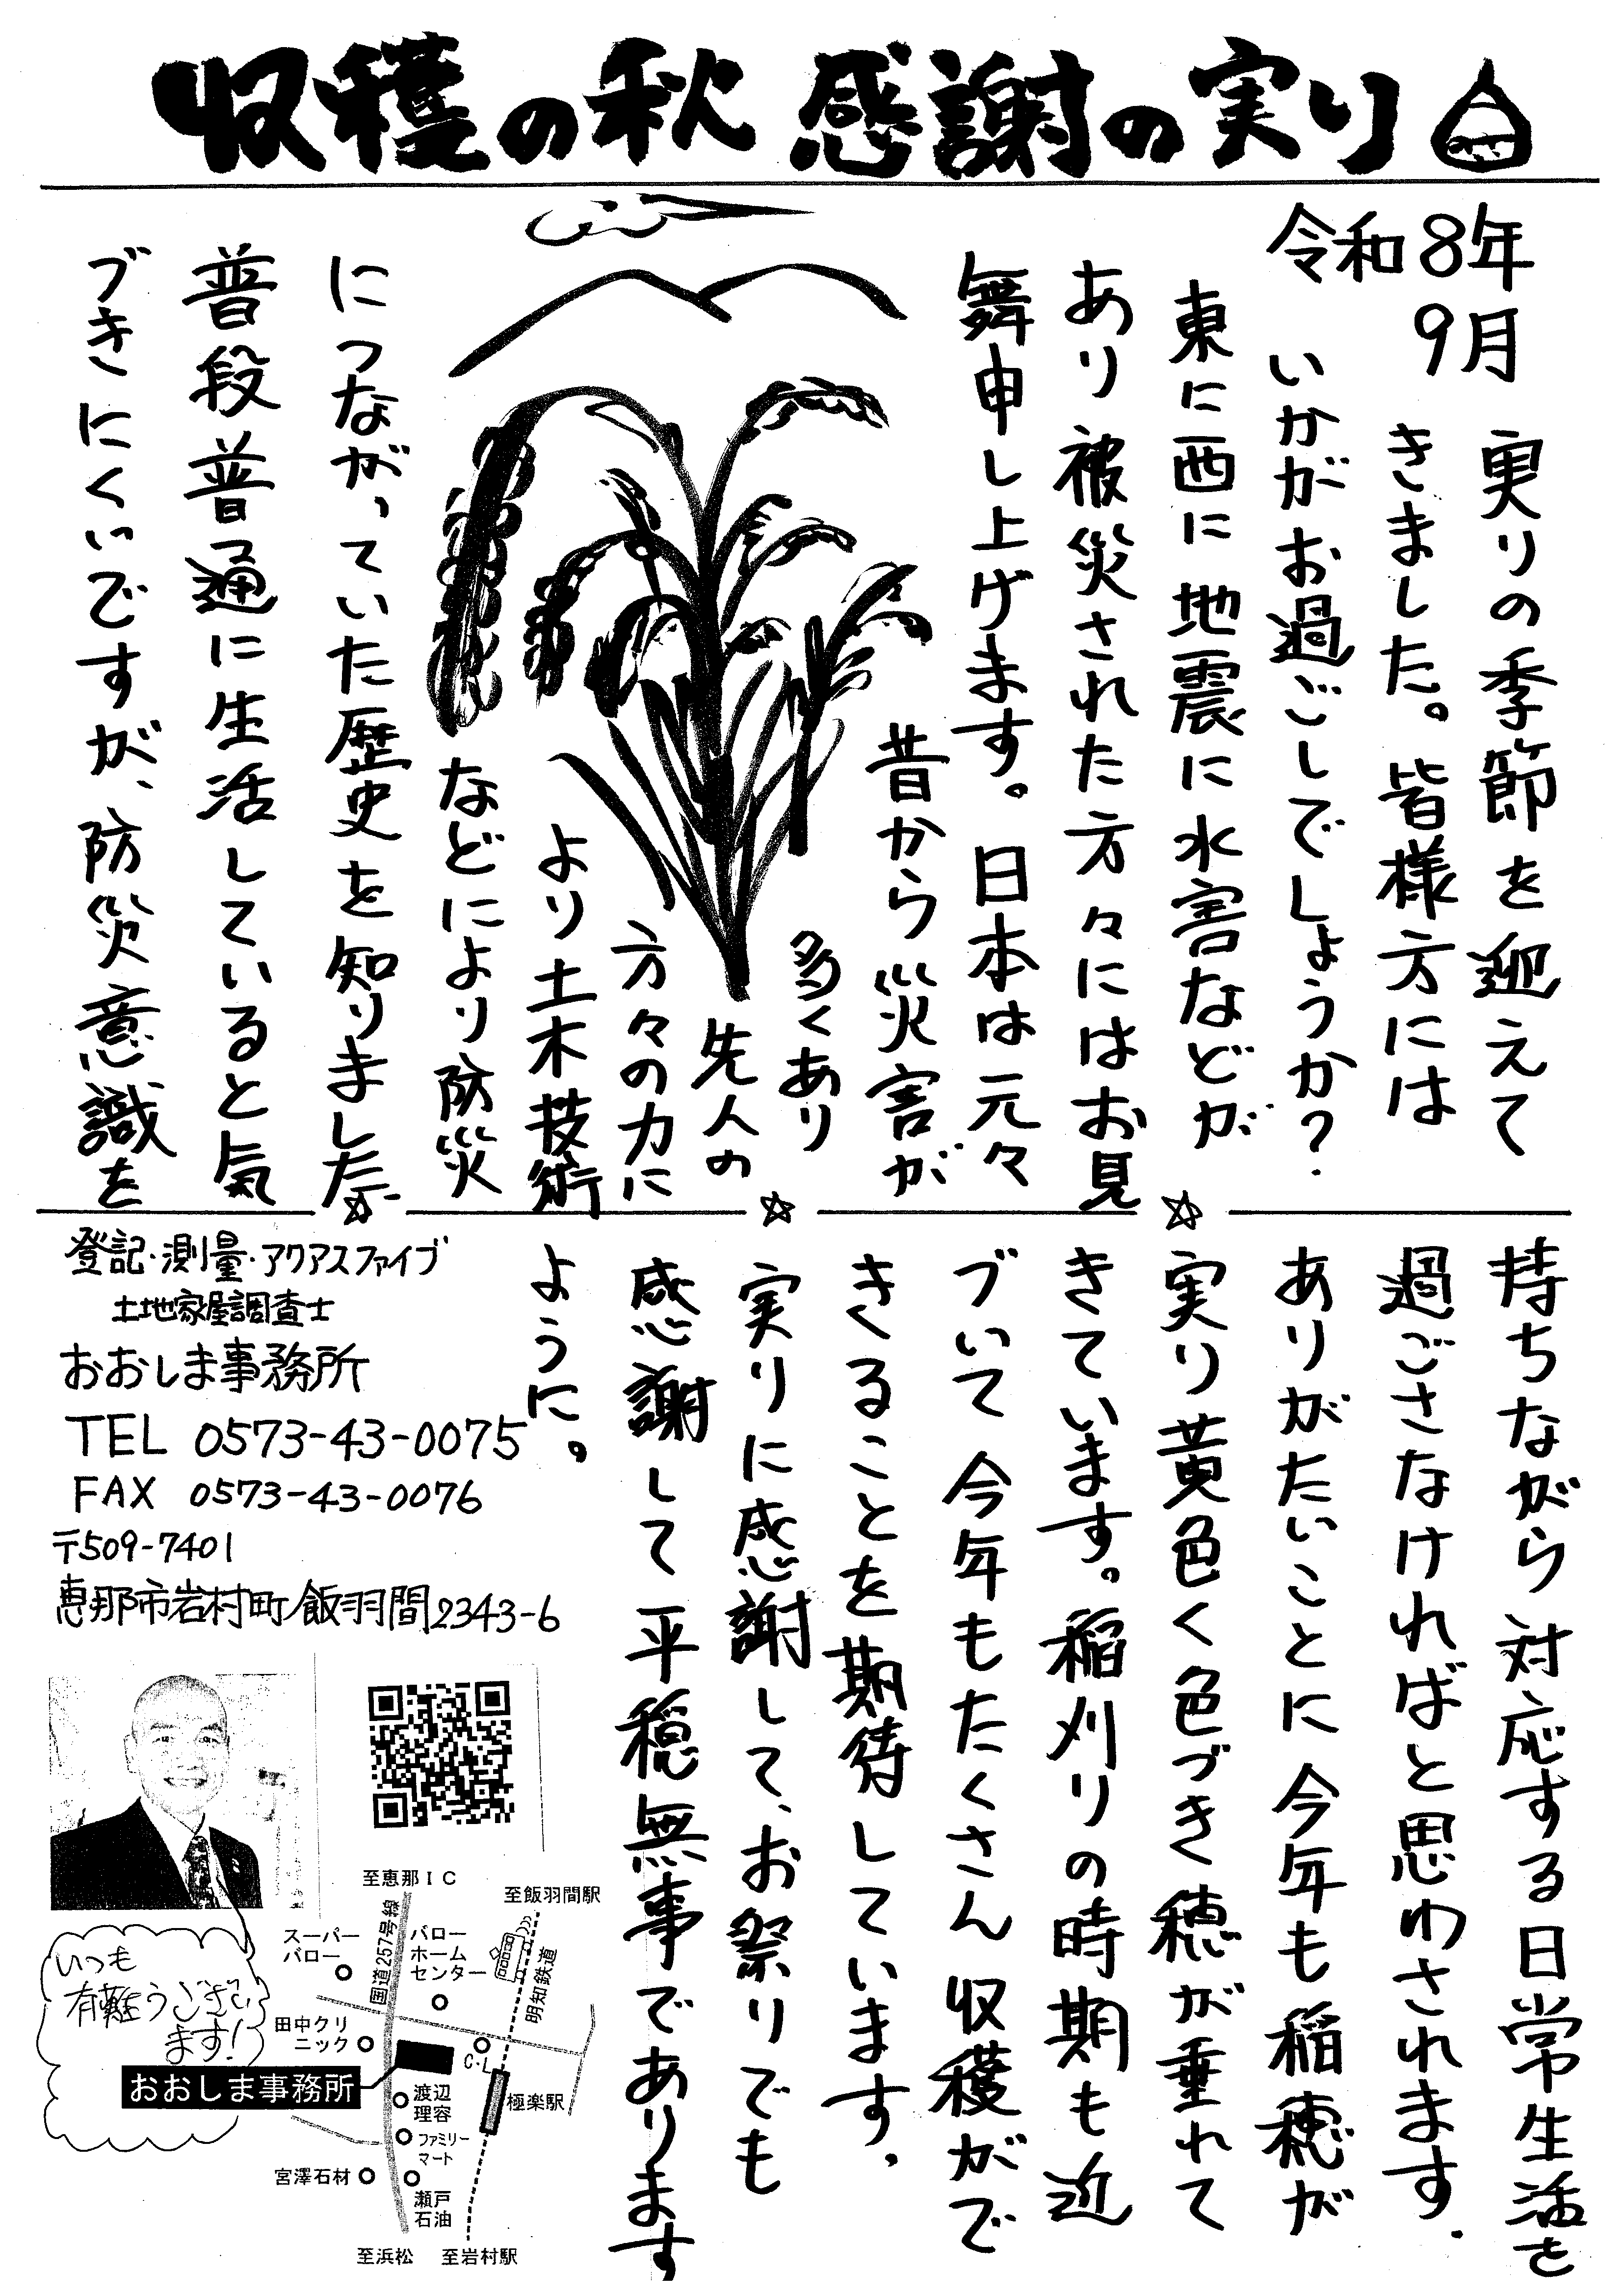 収穫の秋 感謝の実り
令和8年
9月
実りの季節を迎えて
きました。皆様方には
いかがお過ごしでしょうか?
東に西に地震に水害などが
あり被災された方々にはお見
舞申し上げます。日本は元々
昔から災害が
多くあり
先人の
方々の力に
より土木技術
などにより防災
につながっていた歴史を知りました
普段普通に生活していると気
づきにくいですが、防災意識を
持ちながら対応する日常生活を
過ごさなければと思わされます.
ありがたいことに今年も稲穂が
実り黄色く色づき穂が垂れて
きています。稲刈りの時期も近
づいて今年もたくさん収穫がで
きることを期待しています.
実りに感謝して、お祭りでも
感謝して平穏無事であります
ように。
登記・測量・アクアスファイブ
土地家屋調査士
おおしま事務所
TEL 0573-43-0075
FAX 0573-43-0076
〒509-7401
恵那市岩村町飯羽間2343-6
いつも
有難うござい
ます!
至恵那IC
至飯羽間駅
国道257号線
スーパー
バロー
バロー
ホーム
センター
明知鉄道
田中クリ
ニック
C・L
おおしま事務所
渡辺
理容
極楽駅
ファミリー
マート
宮澤石材
瀬戸
石油
至浜松
至岩村駅